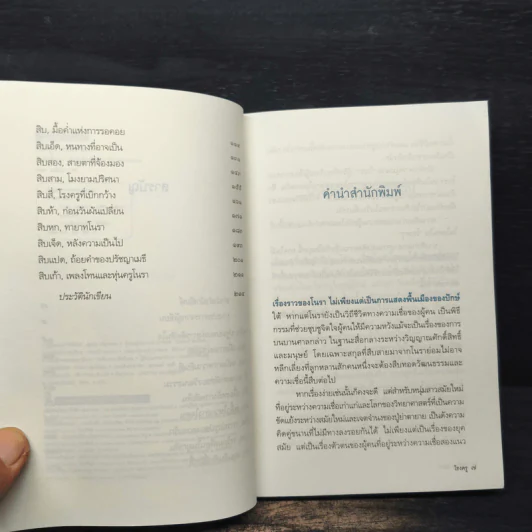 สิบ, มื้อค่ำแห่งการรอคอย
สิบเอ็ด, หนทางที่อาจเป็น
สิบสอง, สายตาที่จ้องมอง
สิบสาม, โมงยามปริศนา
สิบสี่, โรงครูที่เบิกกว้าง
สิบห้า, ก่อนวันผันเปลี่ยน
สิบหก, ทายาทโนรา
สิบเจ็ด, หลังความเป็นไป
สิบแปด, ถ้อยคำของปรัชญาเมธี
สิบเก้า, เพลงโทนและหุ่นครูโนรา
ประวัตินักเขียน
คำนำสำนักพิมพ์
เรื่องราวของโนรา ไม่เพียงแต่เป็นการแสดงพื้นเมืองของปักษ์
ใต้ หากแต่โนรายังเป็นวิถีชีวิตทางความเชื่อของผู้คน เป็นพิธี
กรรมที่ช่วยชุบชูจิตใจผู้คนให้มีความหวังแม้จะเป็นเรื่องของการ
บนบานศาลกล่าว ในฐานะสื่อกลางระหว่างวิญญาณศักดิ์สิทธิ์
และมนุษย์ โดยเฉพาะสกุลที่สืบสายมาจากโนราย่อมไม่อาจ
หลีกเลี่ยงที่ลูกหลานสักคนหนึ่งจะต้องสืบทอดวัฒนธรรมและ
ความเชื่อนี้สืบต่อไป
หากเรื่องง่ายเช่นนั้นก็คงจะดี แต่สำหรับหนุ่มสาวสมัยใหม่
ที่อยู่ระหว่างความเชื่อเก่าแก่และโลกของวิทยาศาสตร์ที่เป็นความ
ขัดแย้งระหว่างสมัยใหม่และเจตจำนงของปู่ย่าตายาย เป็นดังความ
คิดคู่ขนานที่ไม่มีทางลงรอยกันได้ ไม่เพียงแต่เป็นเรื่องของยุค
สมัย แต่เป็นเรื่องตัวตนของผู้คนที่อยู่ระหว่างความเชื่อสองแนว
โรงครู